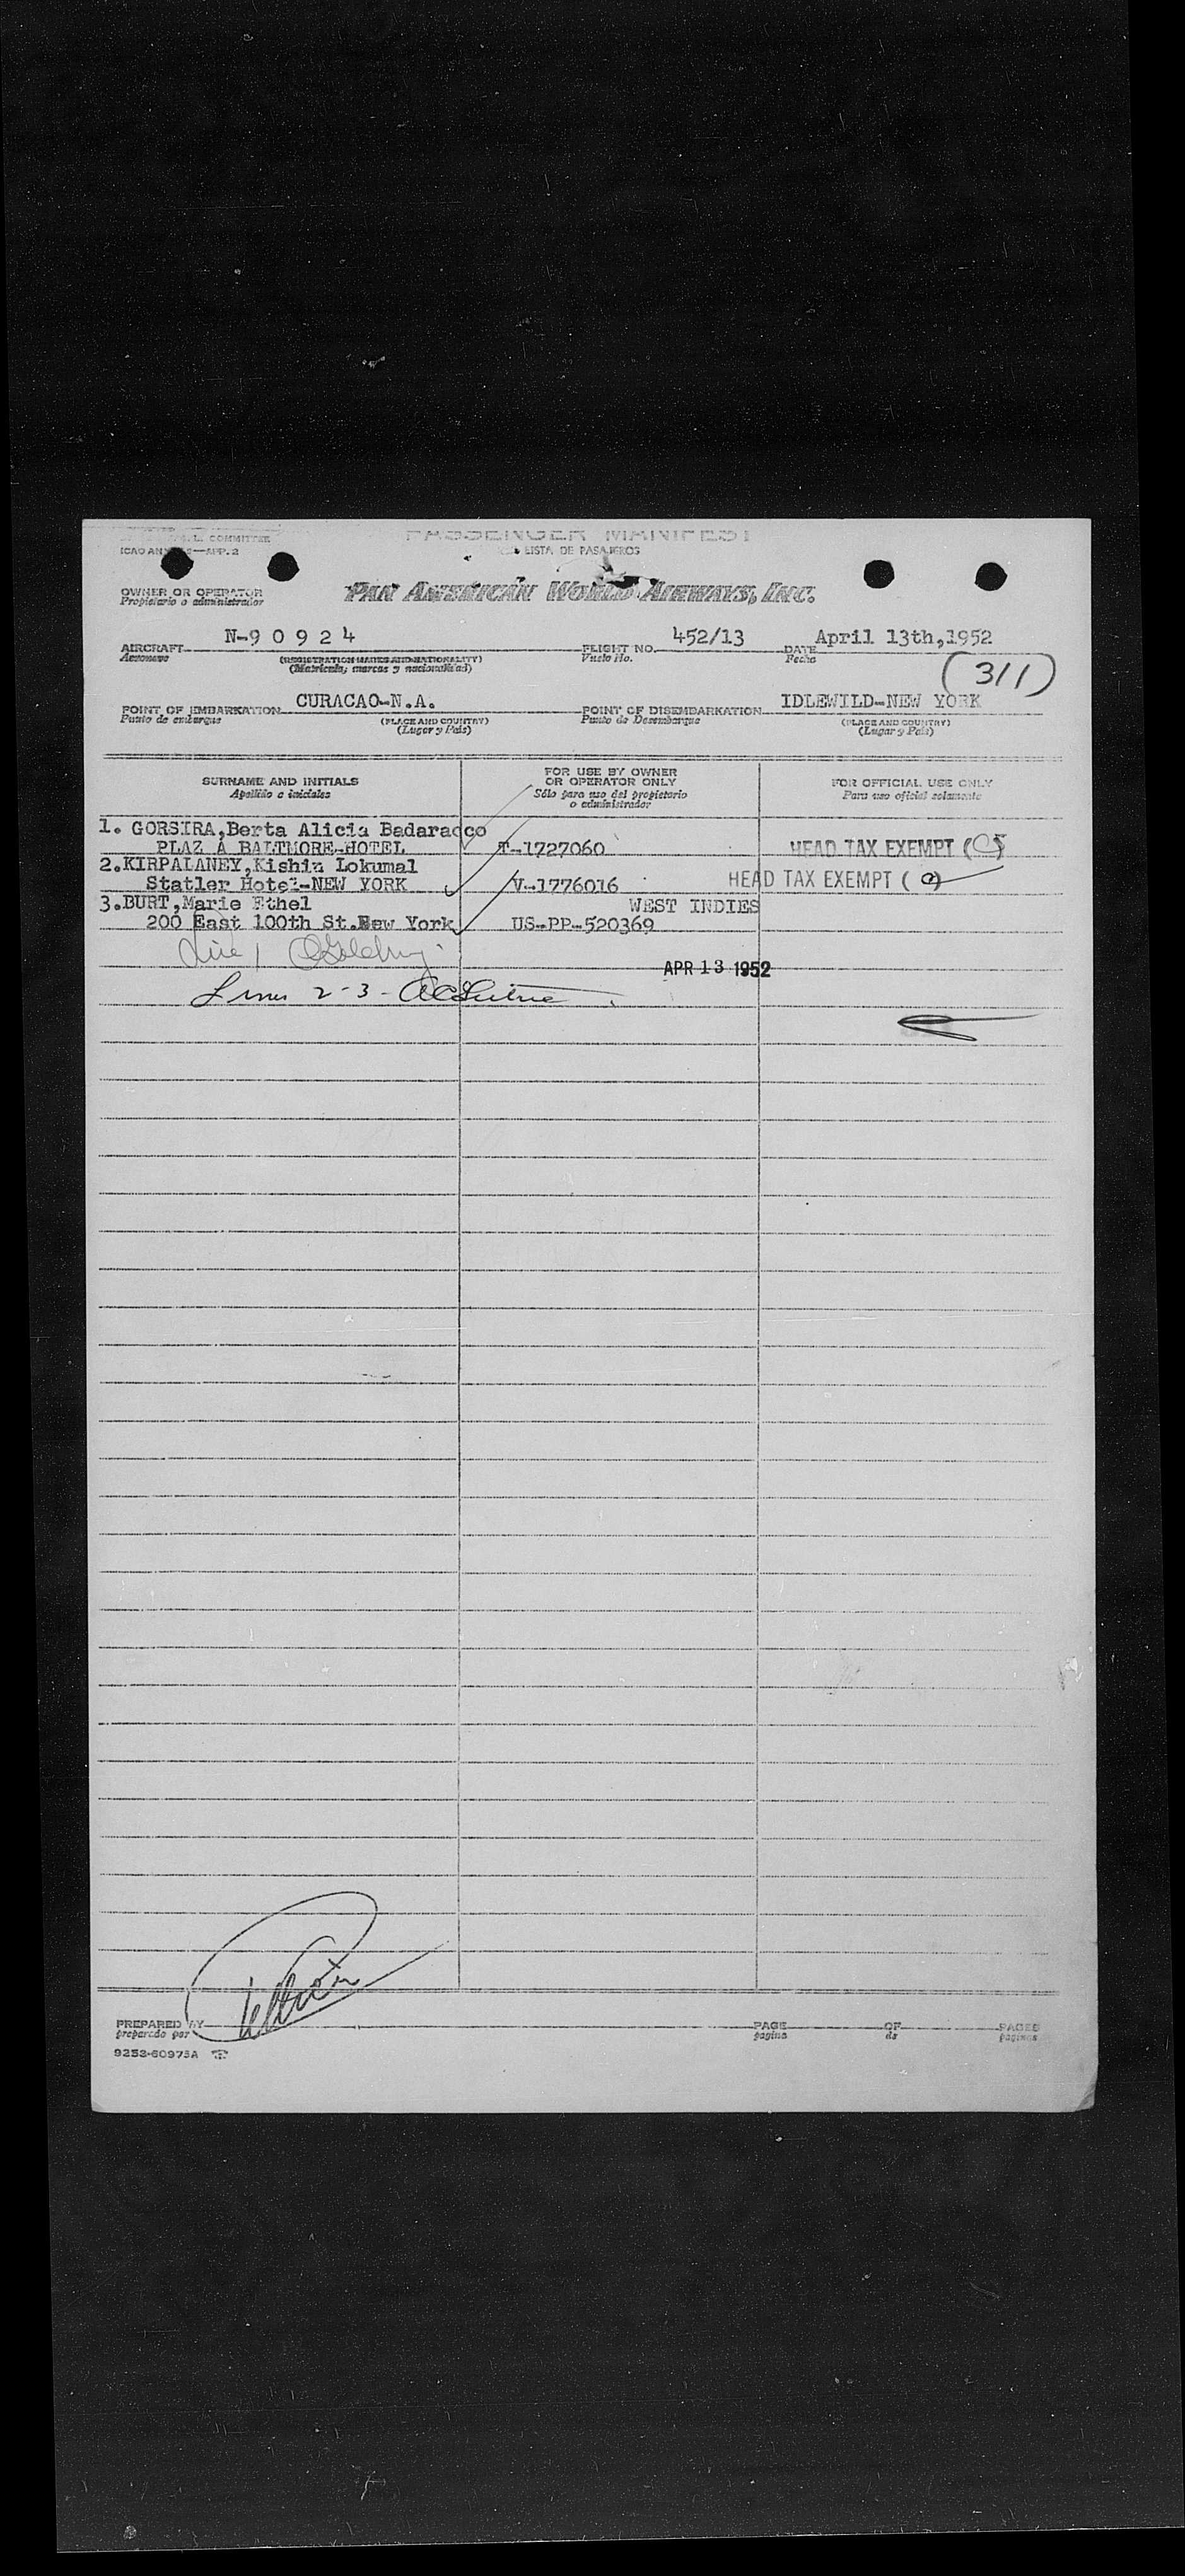 PASSENGER MANIFEST
COMMITTEE
LISTA DE PASAJEROS
ICAO ANNEX 9—APP. 2
OWNER OR OPERATOR
Propietario o administrador
PAN AMERICAN WORLD AIRWAYS, INC.
AIRCRAFT N-9 0 9 2 4 FLIGHT NO. 452/13 DATE April 13th,1952
Aeronave (REGISTRATION MARKS AND NATIONALITY) Vuelo No. Fecha
(Matricula, marcas y nacionalidad)
(311)
POINT OF EMBARKATION CURACAO-N.A. POINT OF DISEMBARKATION IDLEWILD-NEW YORK
Punto de embarque (PLACE AND COUNTRY) Punto de Desembarque (PLACE AND COUNTRY)
(Lugar y País) (Lugar y País)
SURNAME AND INITIALS FOR USE BY OWNER OR OPERATOR ONLY FOR OFFICIAL USE ONLY
Apellido e iniciales Sólo para uso del propietario o administrador Para uso oficial solamente
1. GORSIRA,Berta Alicia Badaracco
PLAZ A BALTMORE-HOTEL T-1727060 HEAD TAX EXEMPT (C)
2.KIRPALANEY,Kishin Lokumal
Statler Hotel-NEW YORK V-1776016 HEAD TAX EXEMPT ( )
3.BURT,Marie Ethel WEST INDIES
200 East 100th St.New York US-PP-520369
Line 1
APR 13 1952
Lines 2-3-
PREPARED BY PAGE OF PAGES
preparado por pagina de paginas
9253-60975A